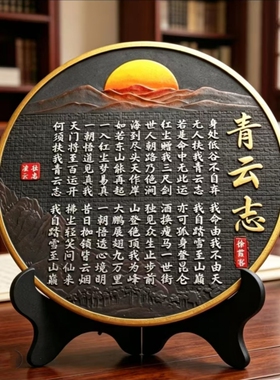 青云志
徐霞客
身处低谷不自弃 我命由我不由天
无人扶我青云志 我自踏雪至山巅
若是命中无此运 亦可孤身登昆仑
红尘赠我三尺剑 酒换瘦马一世街
世人朝路乃深涧 独见众生止步前
海到尽头天作岸 山登绝顶我为峰
如若东山能再起 大鹏展翅九万里
一入红尘梦易真 一朝悟透心境明
一朝悟道见真我 昔日枷锁皆云烟
天门将至百运开 拂尘轻笑问仙来
何须扶我青云志 我自踏雪至山巅
壮志
凌云